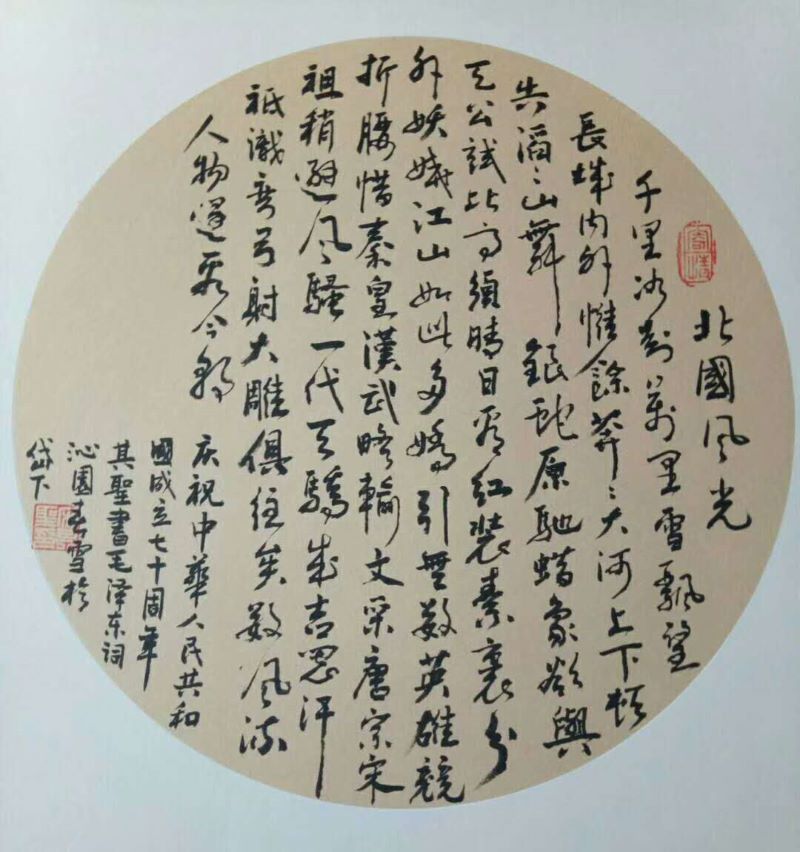 寄情
北國风光
千里冰封萬里雪飄望
長城内外惟餘莽〻大河上下頓
失滔〻山舞銀蛇原馳蜡象欲與
天公試比高須晴日看紅裝素裹分
外妖嬈江山如此多嬌引無數英雄競
折腰惜秦皇漢武略輸文采唐宗宋
祖稍遜风騷一代天驕成吉思汗
祗識彎弓射大雕俱往矣數风流
人物還看今朝
庆祝中華人民共和
國成立七十周年
其聖書毛泽东词
沁園春雪於
岱下